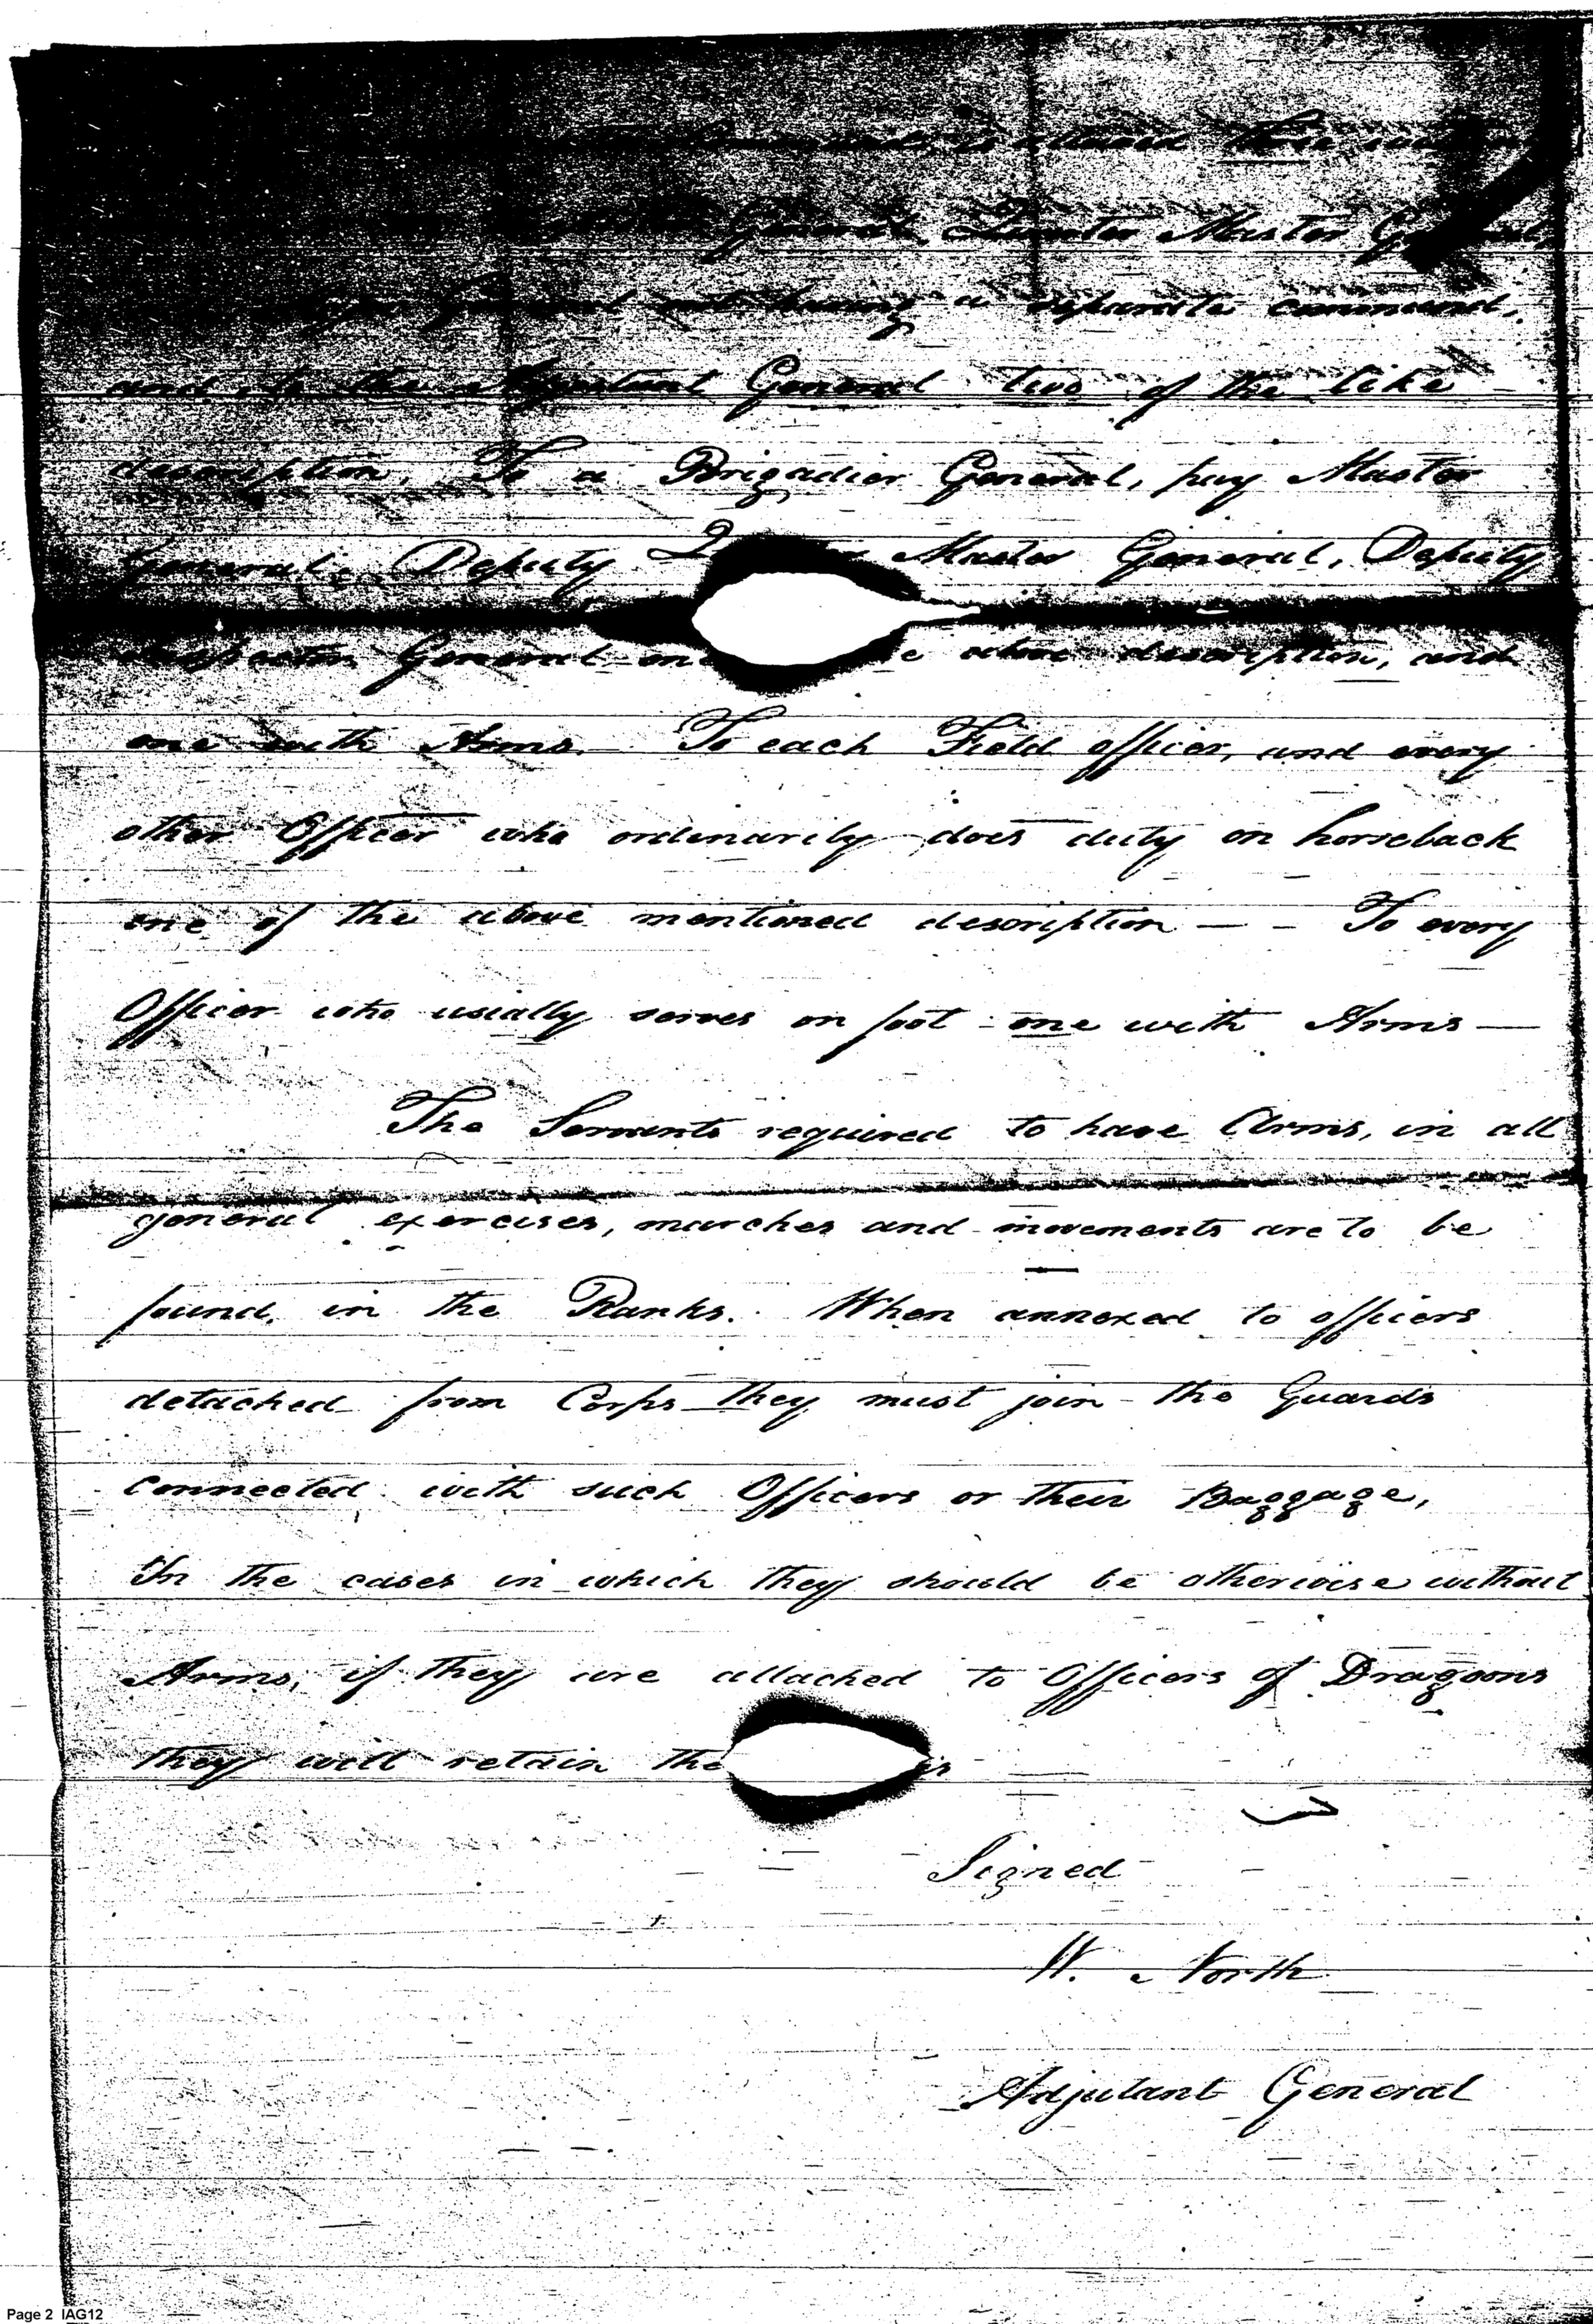 Command, is allowed three
General, Quarter Master General,
General not having a separate command,
and to the Adjutant General two of the like
description. To a Brigadier General, pay Master
General, Deputy Master General, Deputy
Inspector General one above description, and
one with Arms. To each Field officer, and every
other Officer who ordinarily does duty on horseback
one of the above mentioned description — - To every
Officer who usually serves on foot - one with Arms —
The Servants required to have Arms, in all
general exercises, marches and movements are to be
found, in the Ranks. When annexed to officers
detached from Corps they must join the Guards
Connected with such Officers or their Baggage,
In the cases in which they should be otherwise without
Arms, if they are attached to Officers of Dragoons
they will retain
Signed
W. North
Adjutant General
Page 2 IAG12